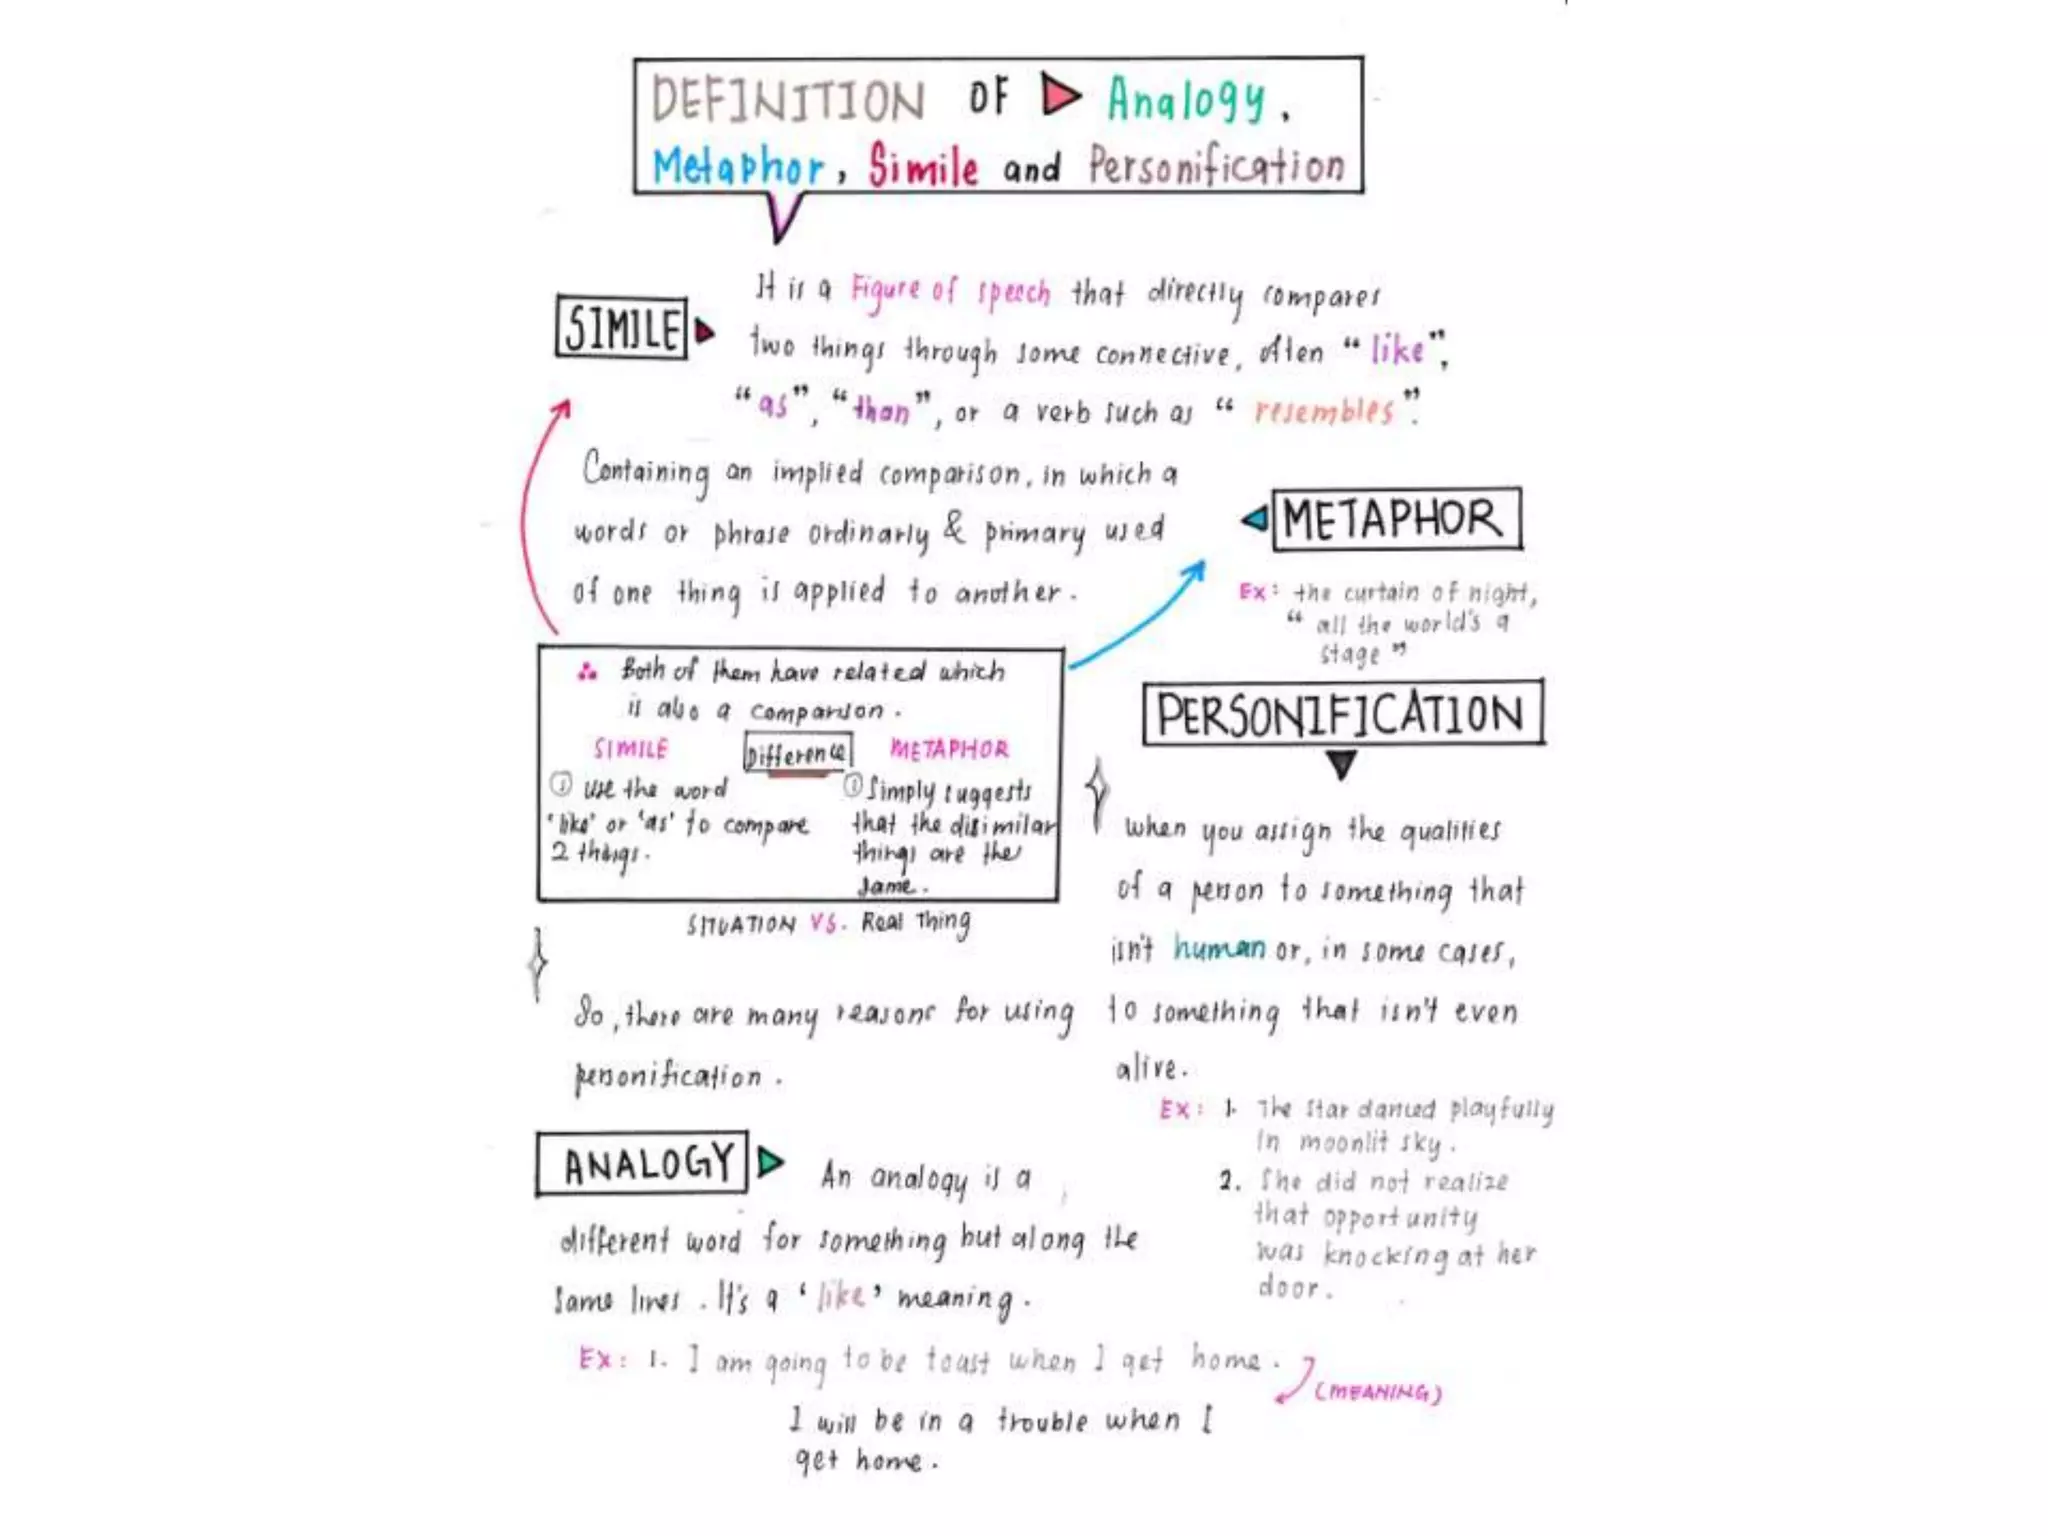 DEFINITION OF Analogy,
Metaphor, Simile and Personification
SIMILE
It is a Figure of speech that directly compares
two things through some connective, often "like",
"as", "than", or a verb such as "resembles".
Containing an implied comparison, in which a
words or phrase ordinarly & primary used
of one thing is applied to another.
METAPHOR
Ex: the curtain of night,
"all the world's a
stage"
Both of them have related which
is also a comparison.
SIMILE Difference METAPHOR
① Use the word
'like' or 'as' to compare
2 things.
① Simply suggests
that the disimilar
things are the
same.
SITUATION VS. Real Thing
PERSONIFICATION
When you assign the qualities
of a person to something that
isn't human or, in some cases,
to something that isn't even
alive.
Ex: 1. The star danced playfully
in moonlit sky.
2. She did not realize
that opportunity
was knocking at her
door.
So, there are many reasons for using
personification.
ANALOGY
An analogy is a
different word for something but along the
same lines. It's a 'like' meaning.
Ex: 1. I am going to be toast when I get home.
(MEANING)
I will be in a trouble when I
get home.